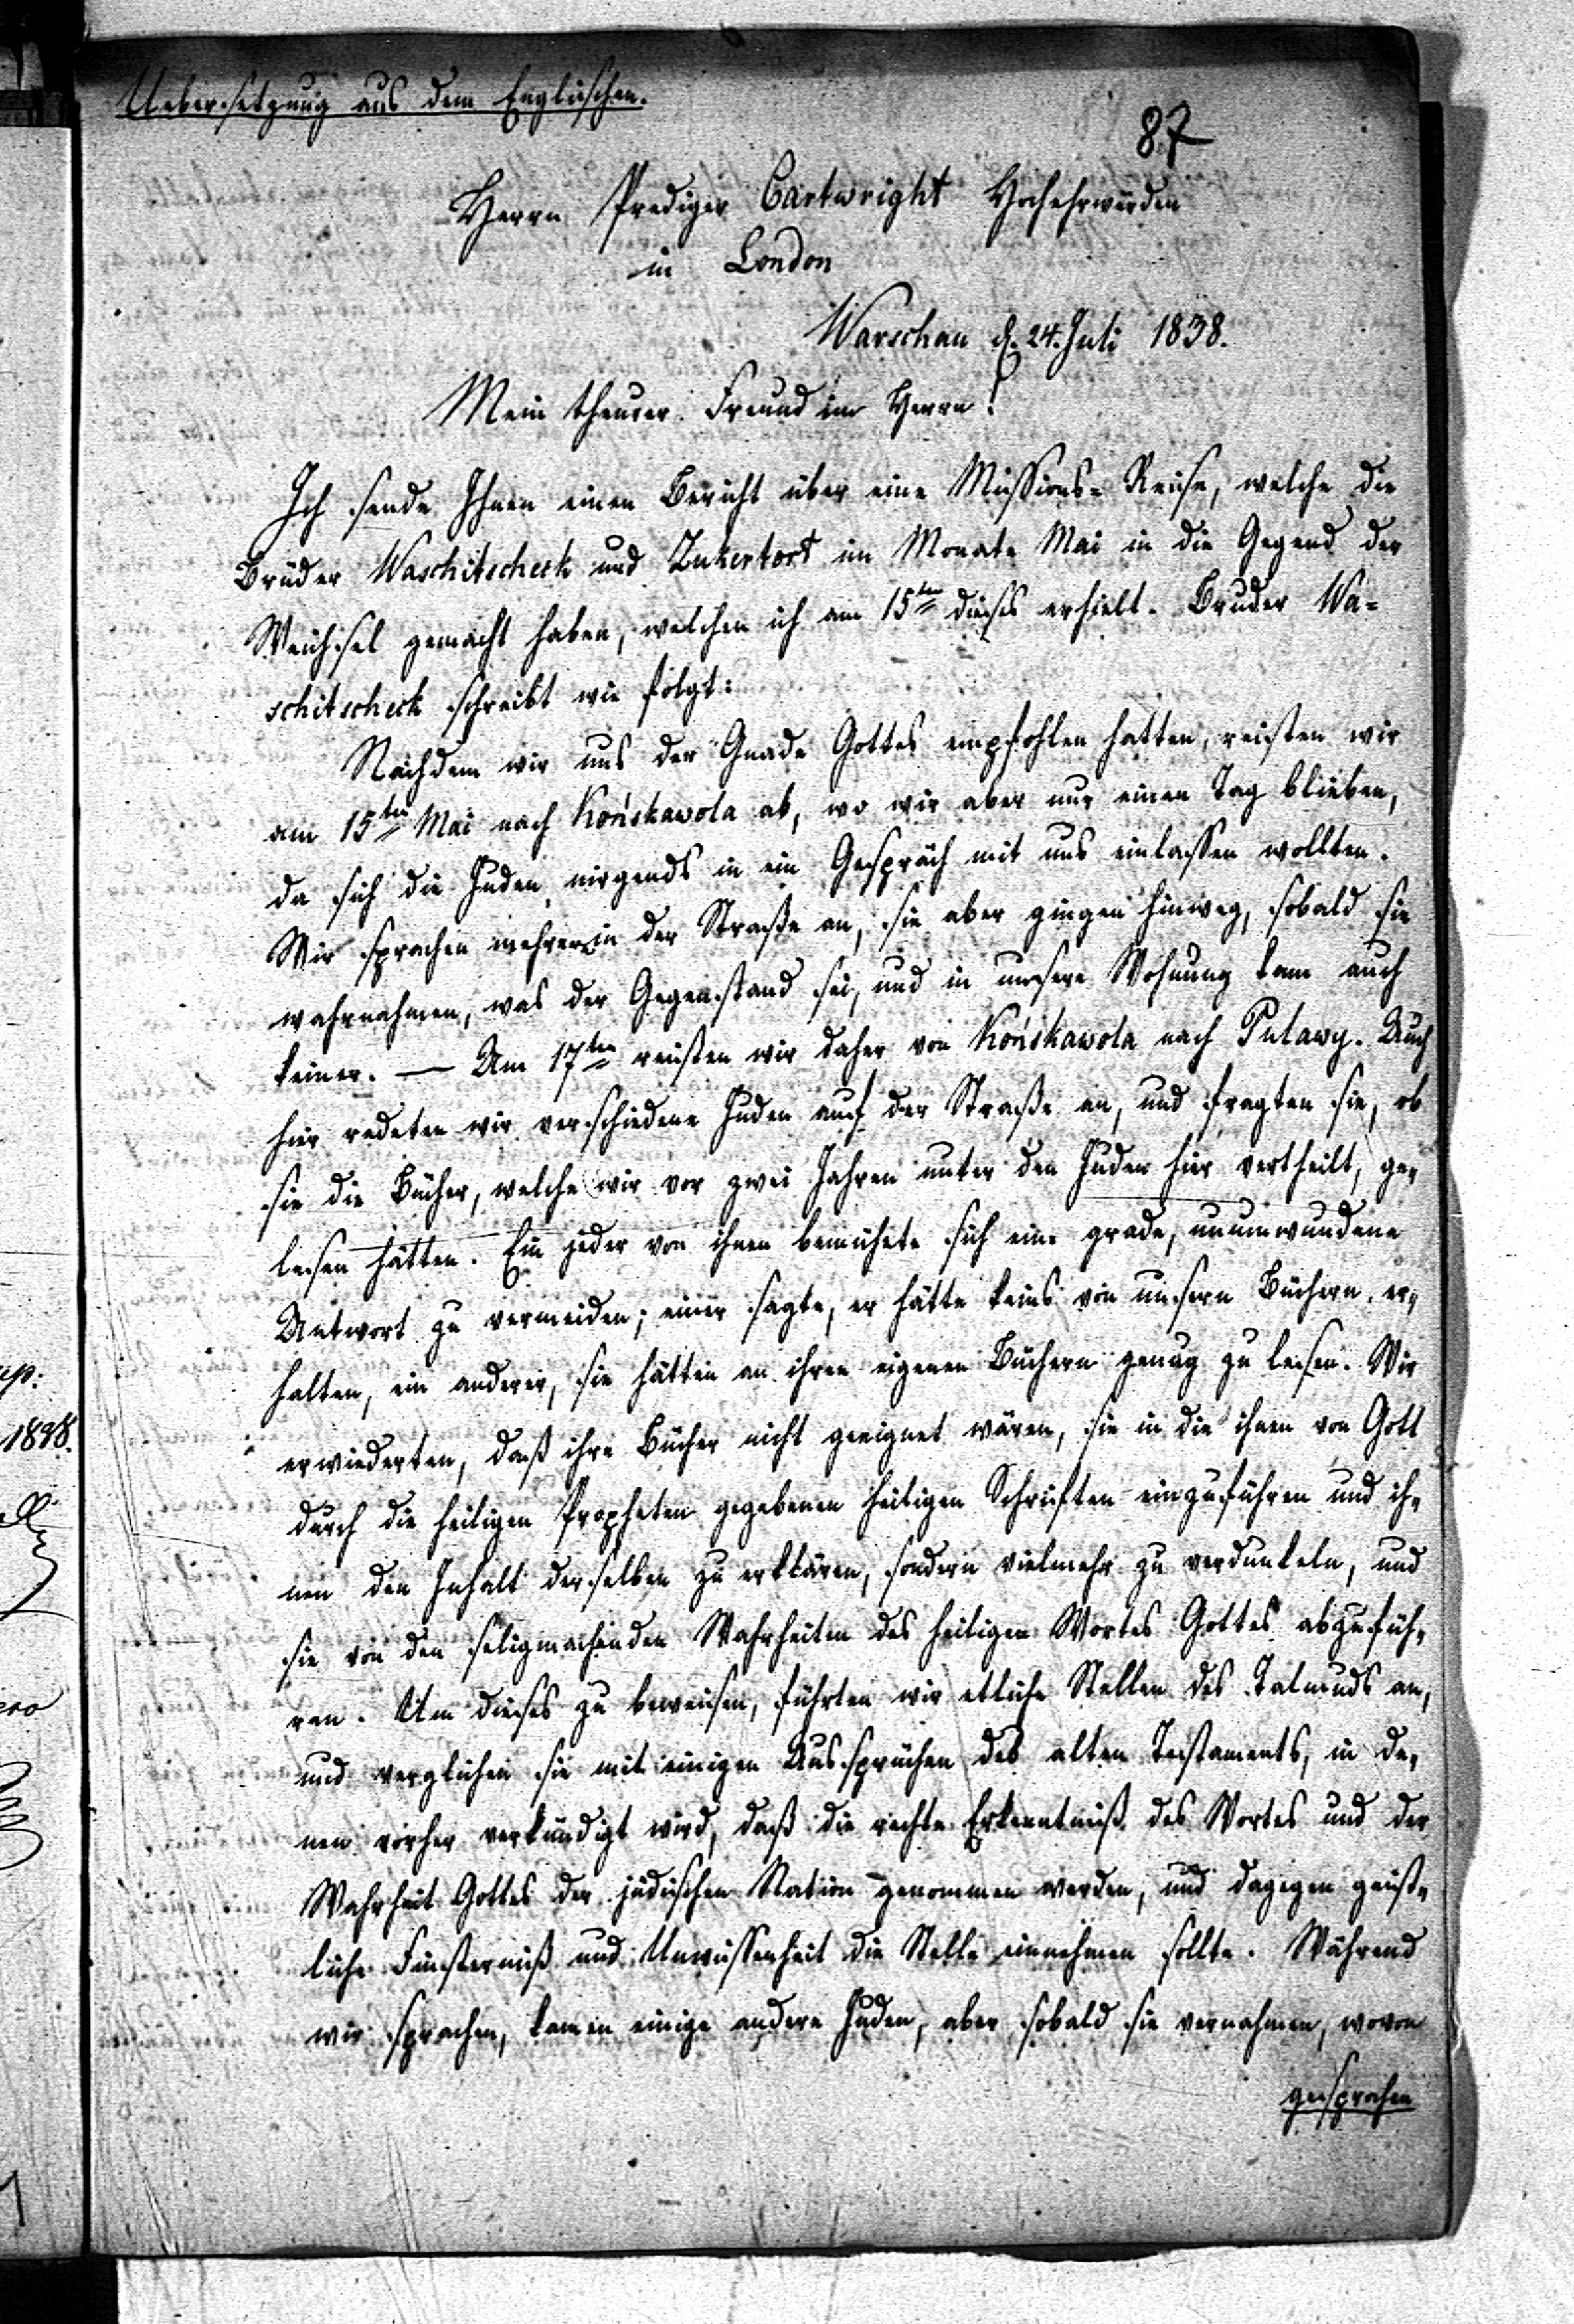 Uebersetzung aus dem Englischen.
87
Herrn Prediger Cartwright Hochehrwürden
in London
Warschau d. 24. Juli 1838.
Mein theurer Freund im Herrn!
Ich sende Ihnen einen Bericht über eine Missions-Reise, welche die
Brüder Waschitscheck und Zukertort im Monate Mai in die Gegend der
Weichsel gemacht haben, welchen ich am 15ten dieses erhielt. Bruder Wa-
schitscheck schreibt wie folgt:
Nachdem wir uns der Gnade Gottes empfohlen hatten, reisten wir
am 15ten Mai nach Końskawola ab, wo wir aber nur einen Tag blieben,
da sich die Juden nirgends in ein Gespräch mit uns einlassen wollten.
Wir sprachen mehrere in der Straße an, sie aber gingen hinweg, sobald sie
wahrnahmen, was der Gegenstand sei, und in unsere Wohnung kam auch
keiner. — Am 17ten reisten wir daher von Końskawola nach Pulawy. Auch
hier redeten wir verschiedene Juden auf der Straße an, und fragten sie, ob
sie die Bücher, welche wir vor zwei Jahren unter den Juden hier vertheilt, ge-
lesen hätten. Ein jeder von ihnen bemühete sich eine grade, unumwundene
Antwort zu vermeiden; einer sagte, er hätte keins von unsern Büchern er-
halten, ein anderer, sie hätten an ihren eigenen Büchern genug zu lesen. Wir
erwiederten, daß ihre Bücher nicht geeignet wären, sie in die ihnen von Gott
durch die heiligen Propheten gegebenen heiligen Schriften einzuführen und ih-
nen den Inhalt derselben zu erklären, sondern vielmehr zu verdunkeln, und
sie von den seligmachenden Wahrheiten des heiligen Wortes Gottes abzufüh-
ren. Um dieses zu beweisen, führten wir etliche Stellen des Talmuds an,
und verglichen sie mit einigen Aussprüchen des alten Testaments, in de-
nen vorher verkündigt wird, daß die rechte Erkenntniß des Wortes und der
Wahrheit Gottes der jüdischen Nation genommen werden, und dagegen geist-
liche Finsterniß und Unwissenheit die Stelle einnehmen sollte. Während
wir sprachen, kamen einige andere Juden, aber sobald sie vernahmen, wovon
gesprochen
1838.